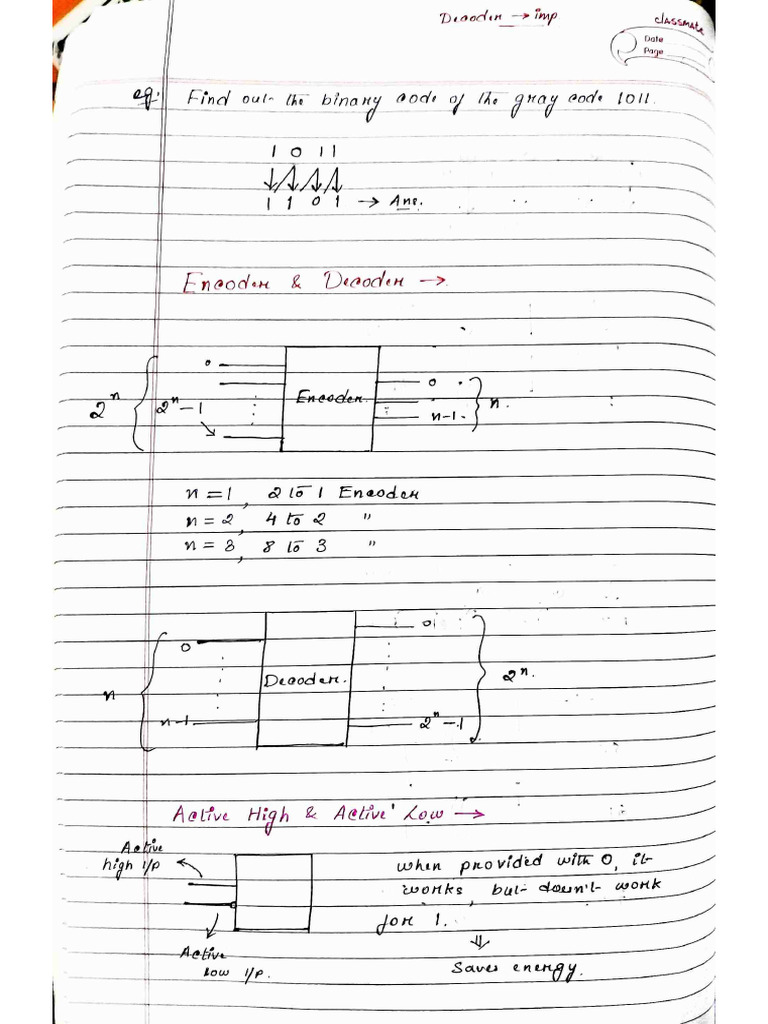 Decoder → imp
classmate
Date
Page
eg: Find out the binary code of the gray code 1011.
1 0 1 1
1 1 0 1 → Ans.
Encoder & Decoder →
0
2ⁿ
2ⁿ-1
Encoder.
0
n-1
n.
n=1, 2 to 1 Encoder
n=2, 4 to 2 "
n=3, 8 to 3 "
0
n
n-1
Decoder.
0
2ⁿ-1
2ⁿ.
Active High & Active Low →
Active
high i/p
Active
low i/p.
when provided with 0, it
works, but doesn't work
for 1.
⇓
Saves energy.